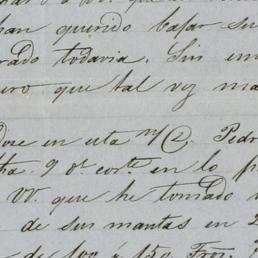 han querido bajar su
rado todavia. Sin em
ero que tal vez ma
dose en esta m/2. Pedr
cha. 9 de corte en lo p
VV. que he tomado
de sus mantas en 2
de 100 á 150 Frs.